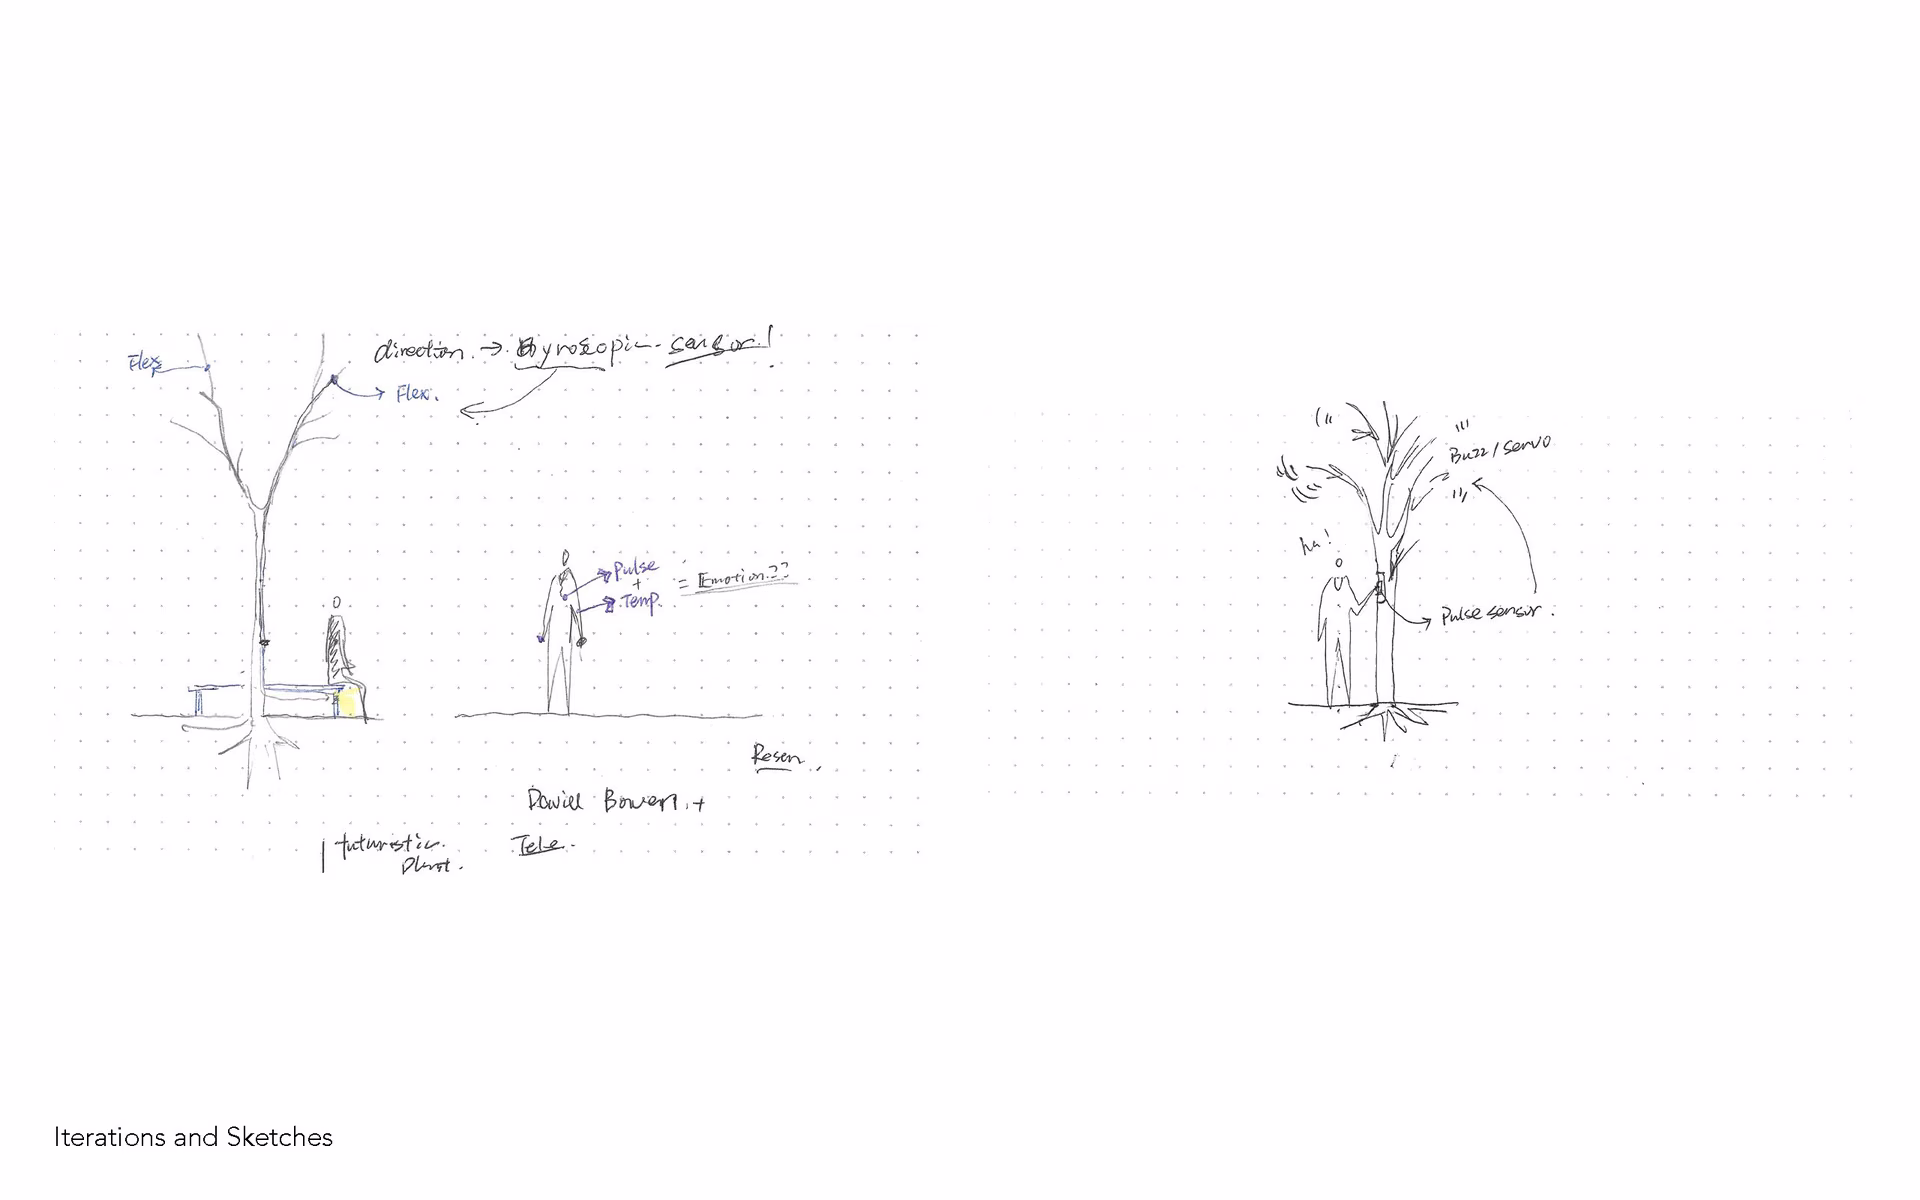 direction. → Gyroscopic sensor!
Flex
Flex.
Pulse
+
Temp.
= Emotion??
Daniel Bowen. +
futuristic.
Plant.
Tele.
ha!
Buzz / servo
Pulse sensor.
Iterations and Sketches